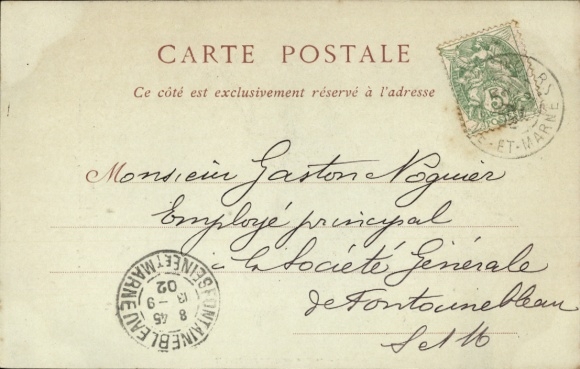 CARTE POSTALE
Ce côté est exclusivement réservé à l'adresse
5c
ET-MARNE
Monsieur Gaston Noguier
Employé principal
à la Société Générale
de Fontainebleau
S et M
FONTAINEBLEAU
SEINE ET MARNE
8 45
13 - 9
02